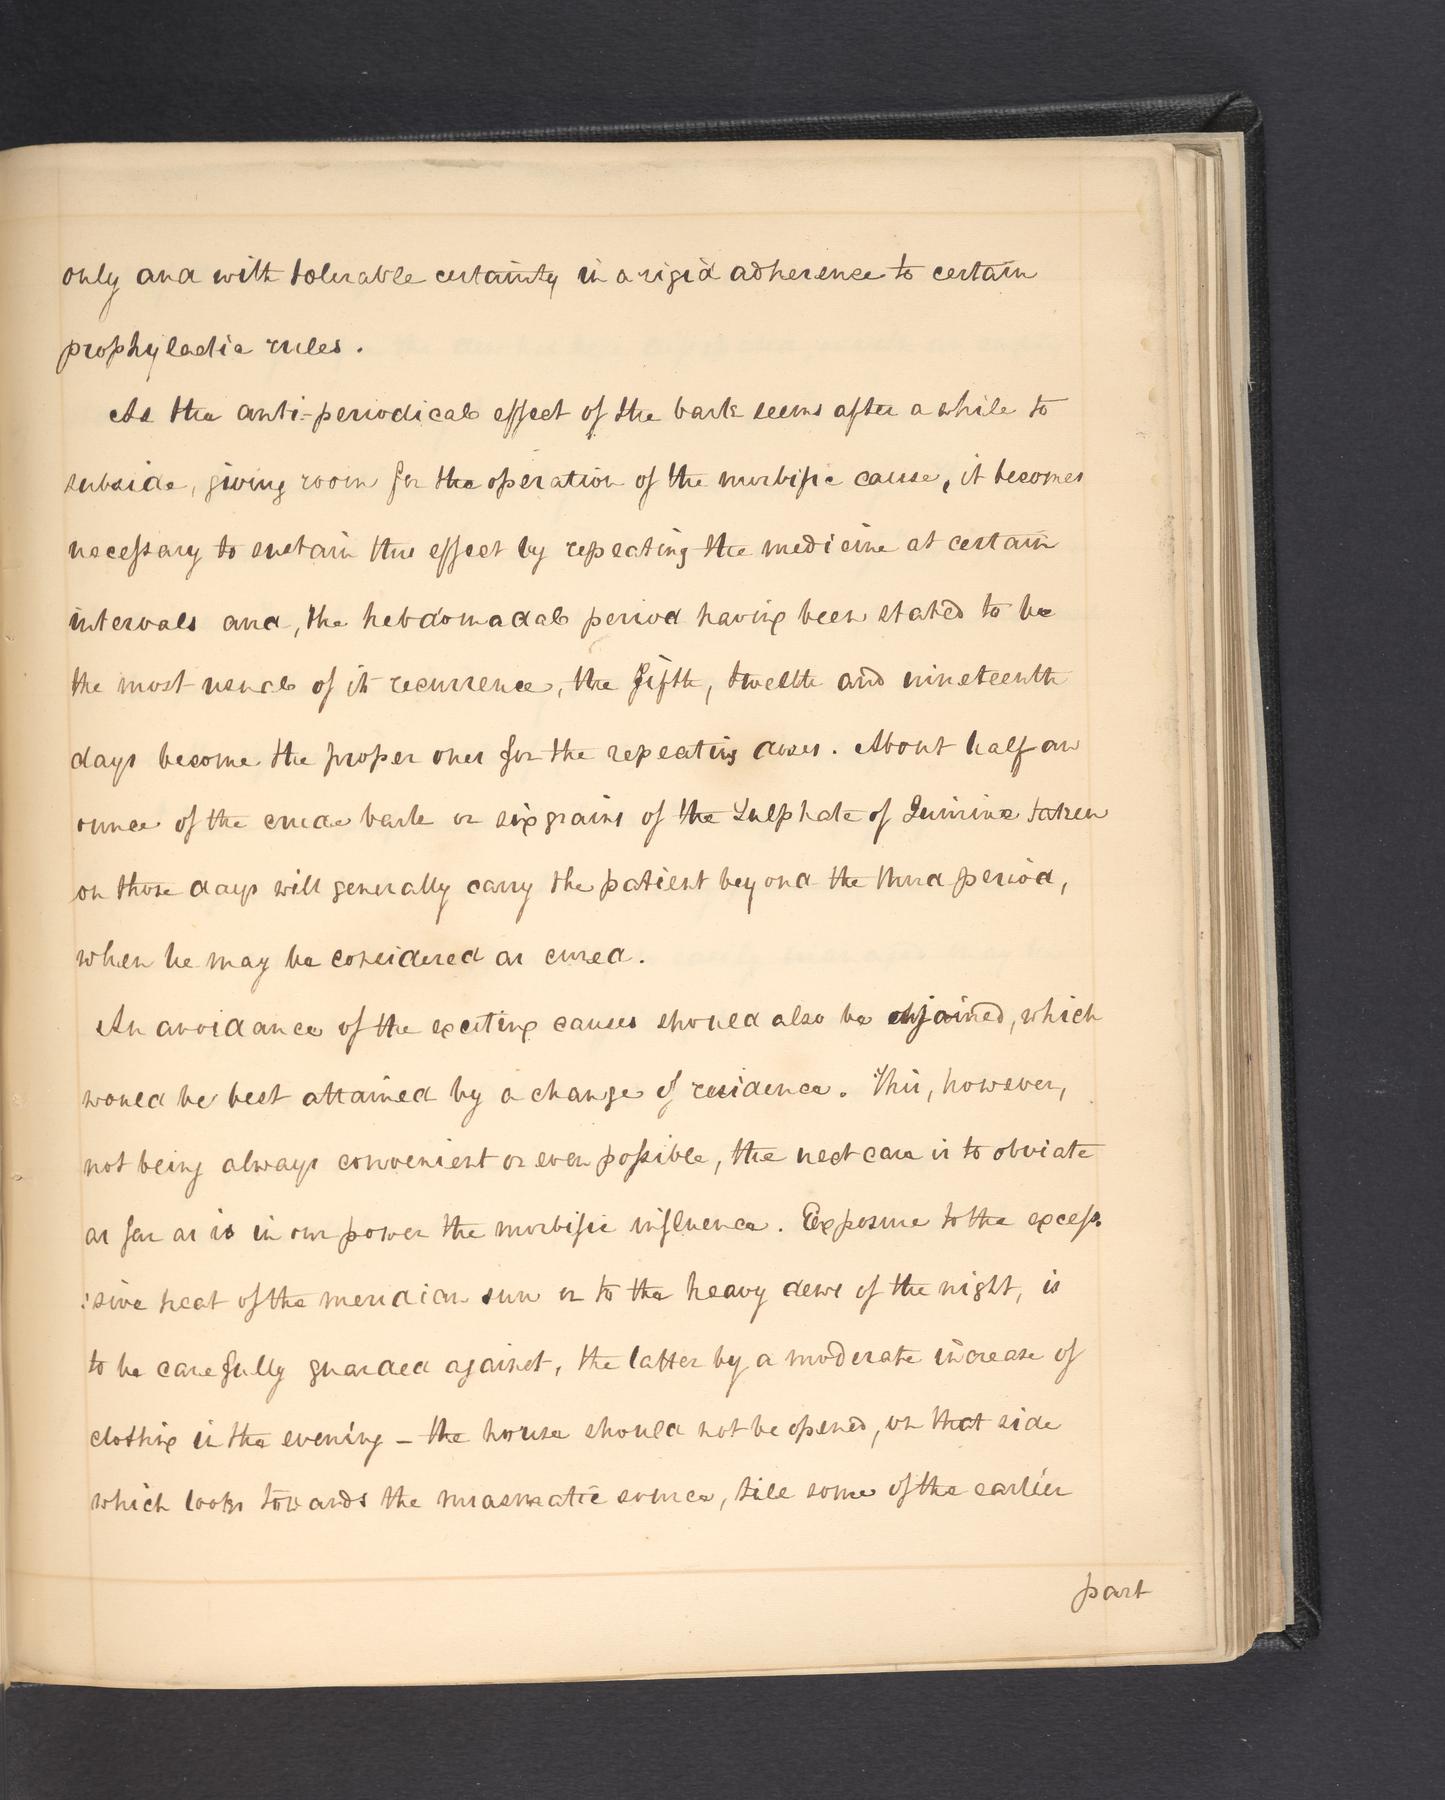 only and with tolerable certainty in a rigid adherence to certain
prophylactic rules.
As the anti-periodical effect of the bark seems after a while to
subside, giving room for the operation of the morbific cause, it becomes
necessary to sustain this effect by repeating the medicine at certain
intervals and, the hebdomadal period having been stated to be
the most usual of its recurrence, the fifth, twelfth and nineteenth
days become the proper ones for the repeating doses. About half an
ounce of the crude bark or six grains of the Sulphate of Quinine taken
on those days will generally carry the patient beyond the third period,
when he may be considered as cured.
An avoidance of the exciting causes should also be enjoined, which
would be best attained by a change of residence. This, however,
not being always convenient or even possible, the next care is to obviate
as far as is in our power the morbific influence. Exposure to the exces-
:sive heat of the meridian sun or to the heavy dews of the night, is
to be carefully guarded against, the latter by a moderate increase of
clothing in the evening – the house should not be opened, on that side
which looks towards the miasmatic source, till some of the earlier
part